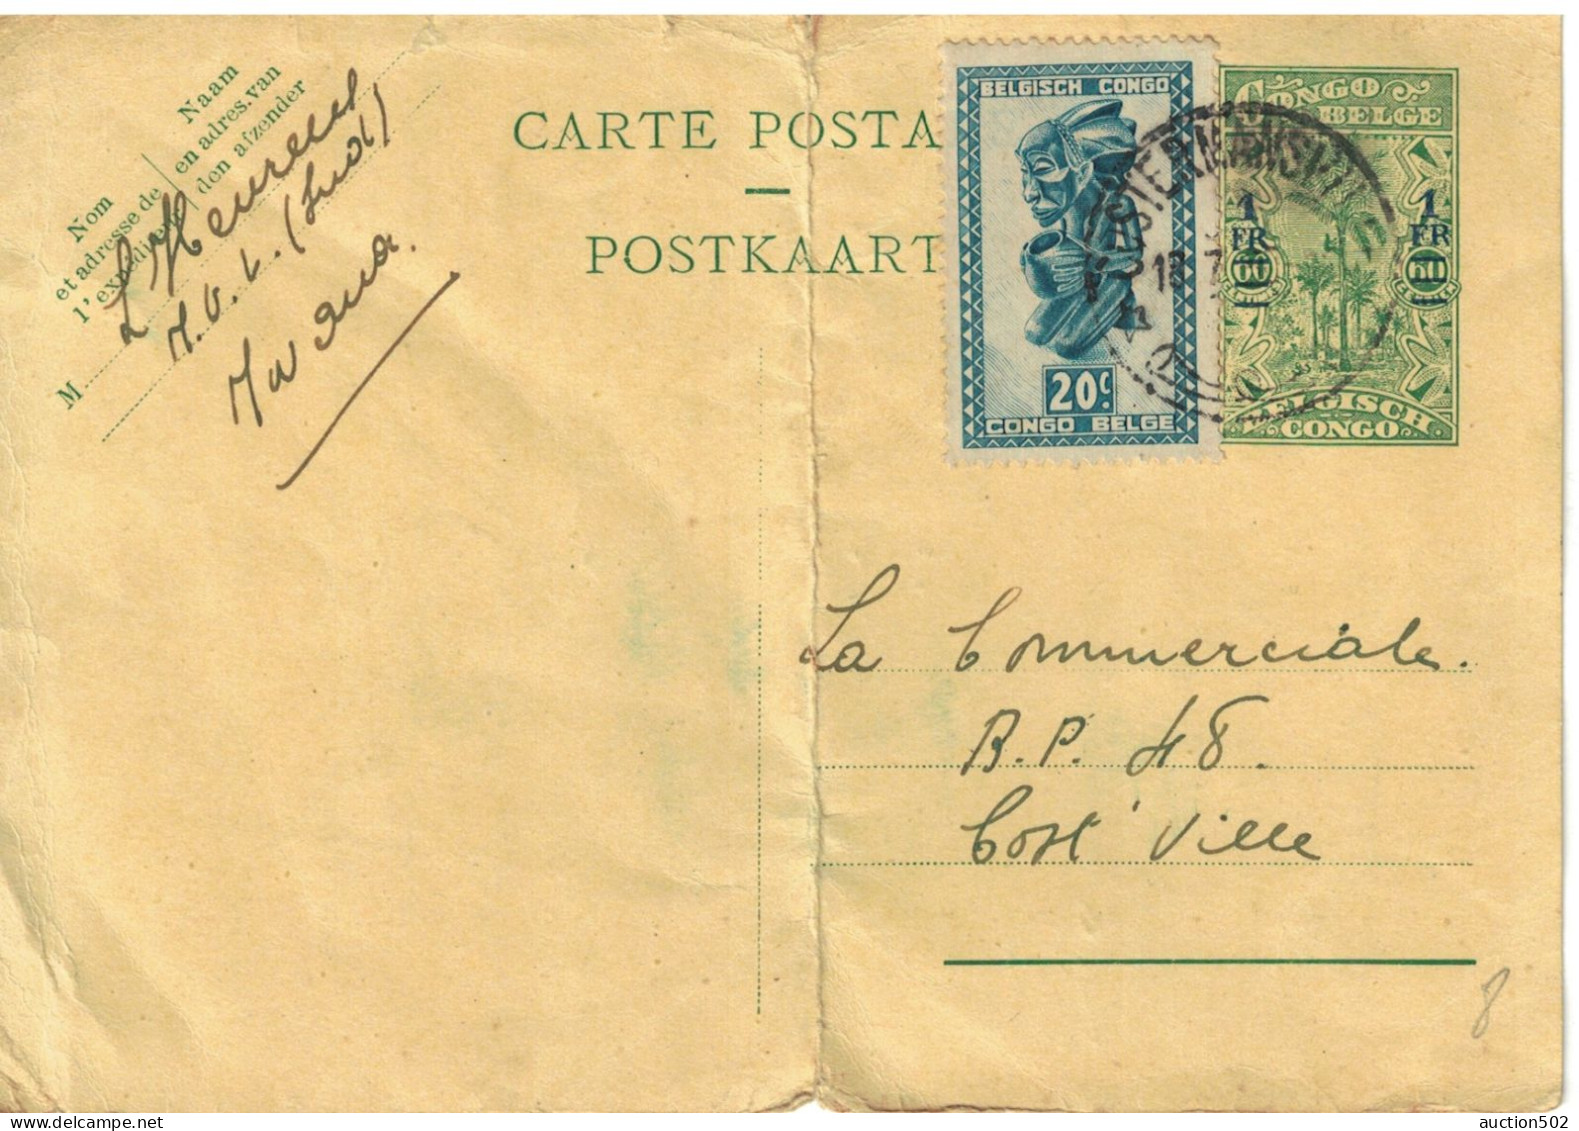 Nom
et adresse de
l'expéditeur
Naam
en adres van
den afzender
M
A. U. L. (Sud)
CARTE POSTA
POSTKAART
BELGISCH CONGO
20c.
CONGO BELGE
CONGO
BELGE
1
FR
60
1
FR
60
BELGISCH
CONGO
COSTERMANSVILLE
La Commerciale.
B.P. 48.
Cost' Ville
8
auction502